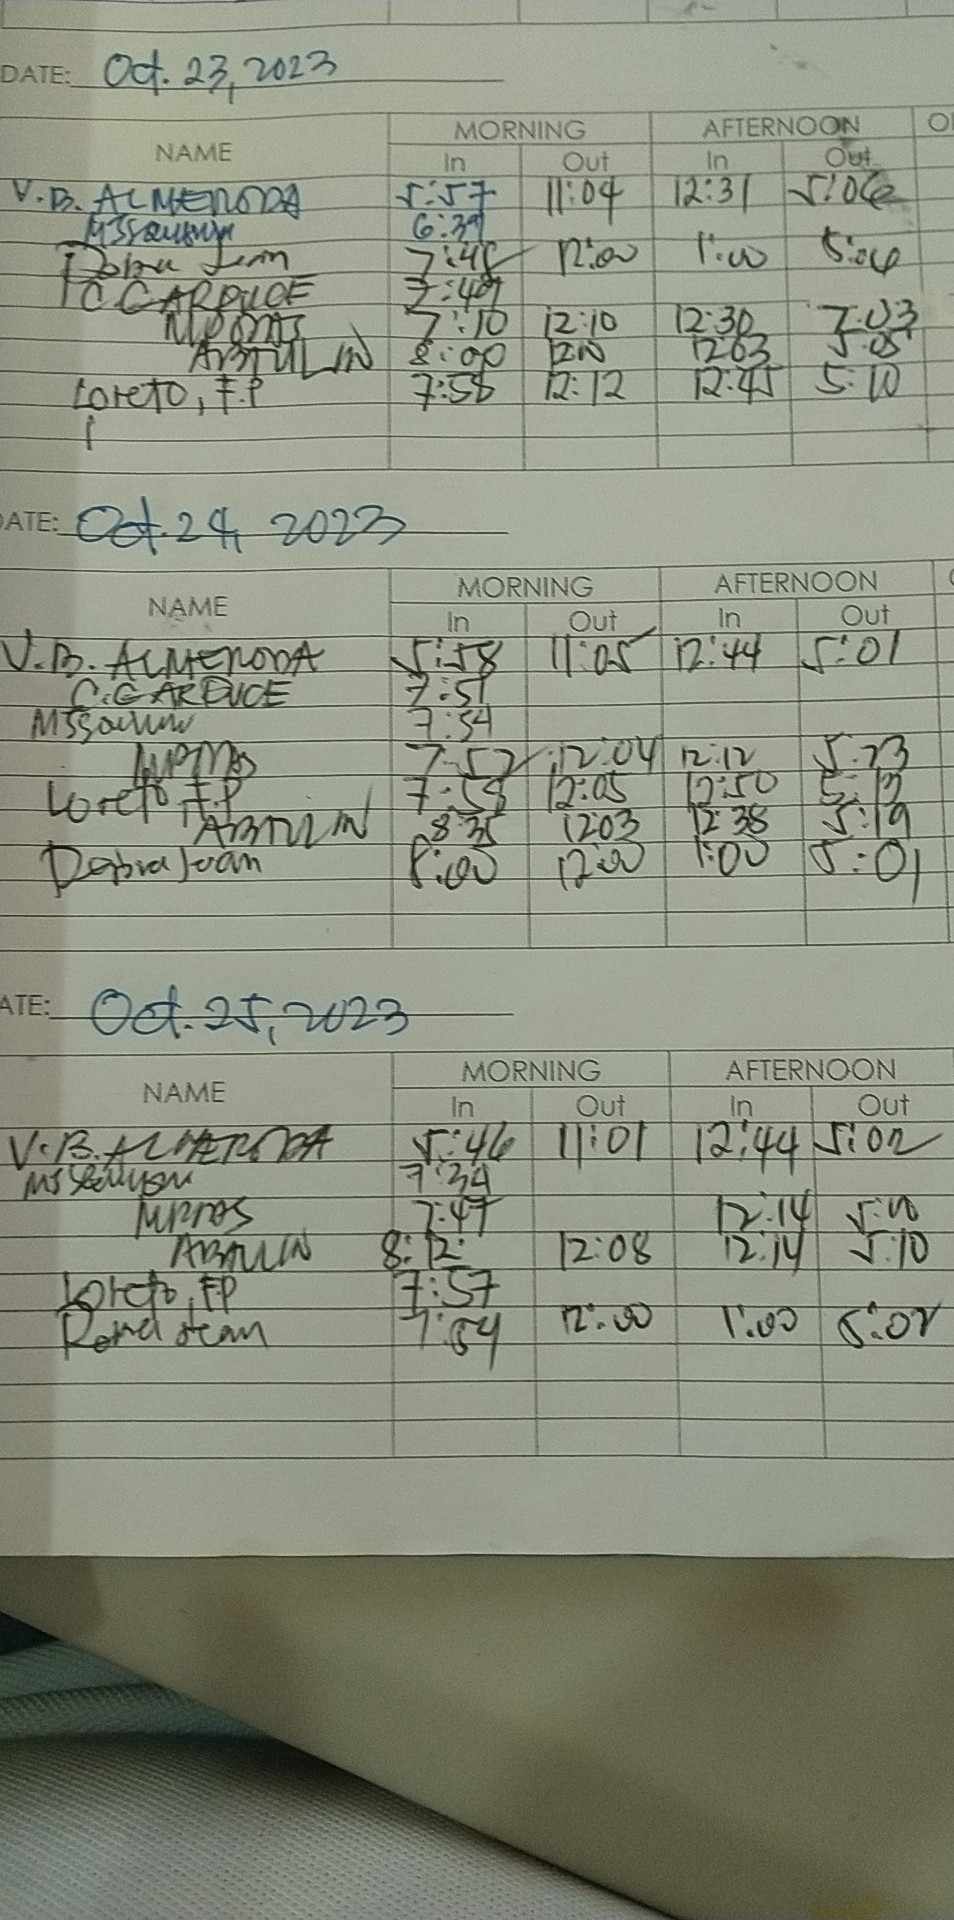 DATE: Oct. 23, 2023
NAME MORNING AFTERNOON
In Out In Out
V.B. ALMERODA 5:57 11:04 12:31 5:06
6:39
Joan 7:48 12:00 1:00 5:04
C GARDUCE 7:49
7:10 12:10 12:30 7:03
ABTULIN 8:00 1210 1203 5:05
Loreto, F.P 7:58 12:12 12:45 5:10
DATE: Oct. 24, 2023
NAME MORNING AFTERNOON
In Out In Out
V.B. ALMERODA 5:58 11:05 12:44 5:01
C.GARDUCE 7:51
7:54
7:52 12:04 12:12 5:23
Loreto F.P 7:58 12:05 12:50 5:13
ABTULIN 8:35 1203 12 38 5:19
Joan 8:00 12:00 1:00 5:01
ATE: Oct. 25, 2023
NAME MORNING AFTERNOON
In Out In Out
V.B. ALMERODA 5:46 11:01 12:44 5:02
7:34
7:47 12:14 5:10
ABTULIN 8:12 12:08 12:14 5:10
Loreto, FP 7:57
Joan 7:54 12:00 1:00 5:02